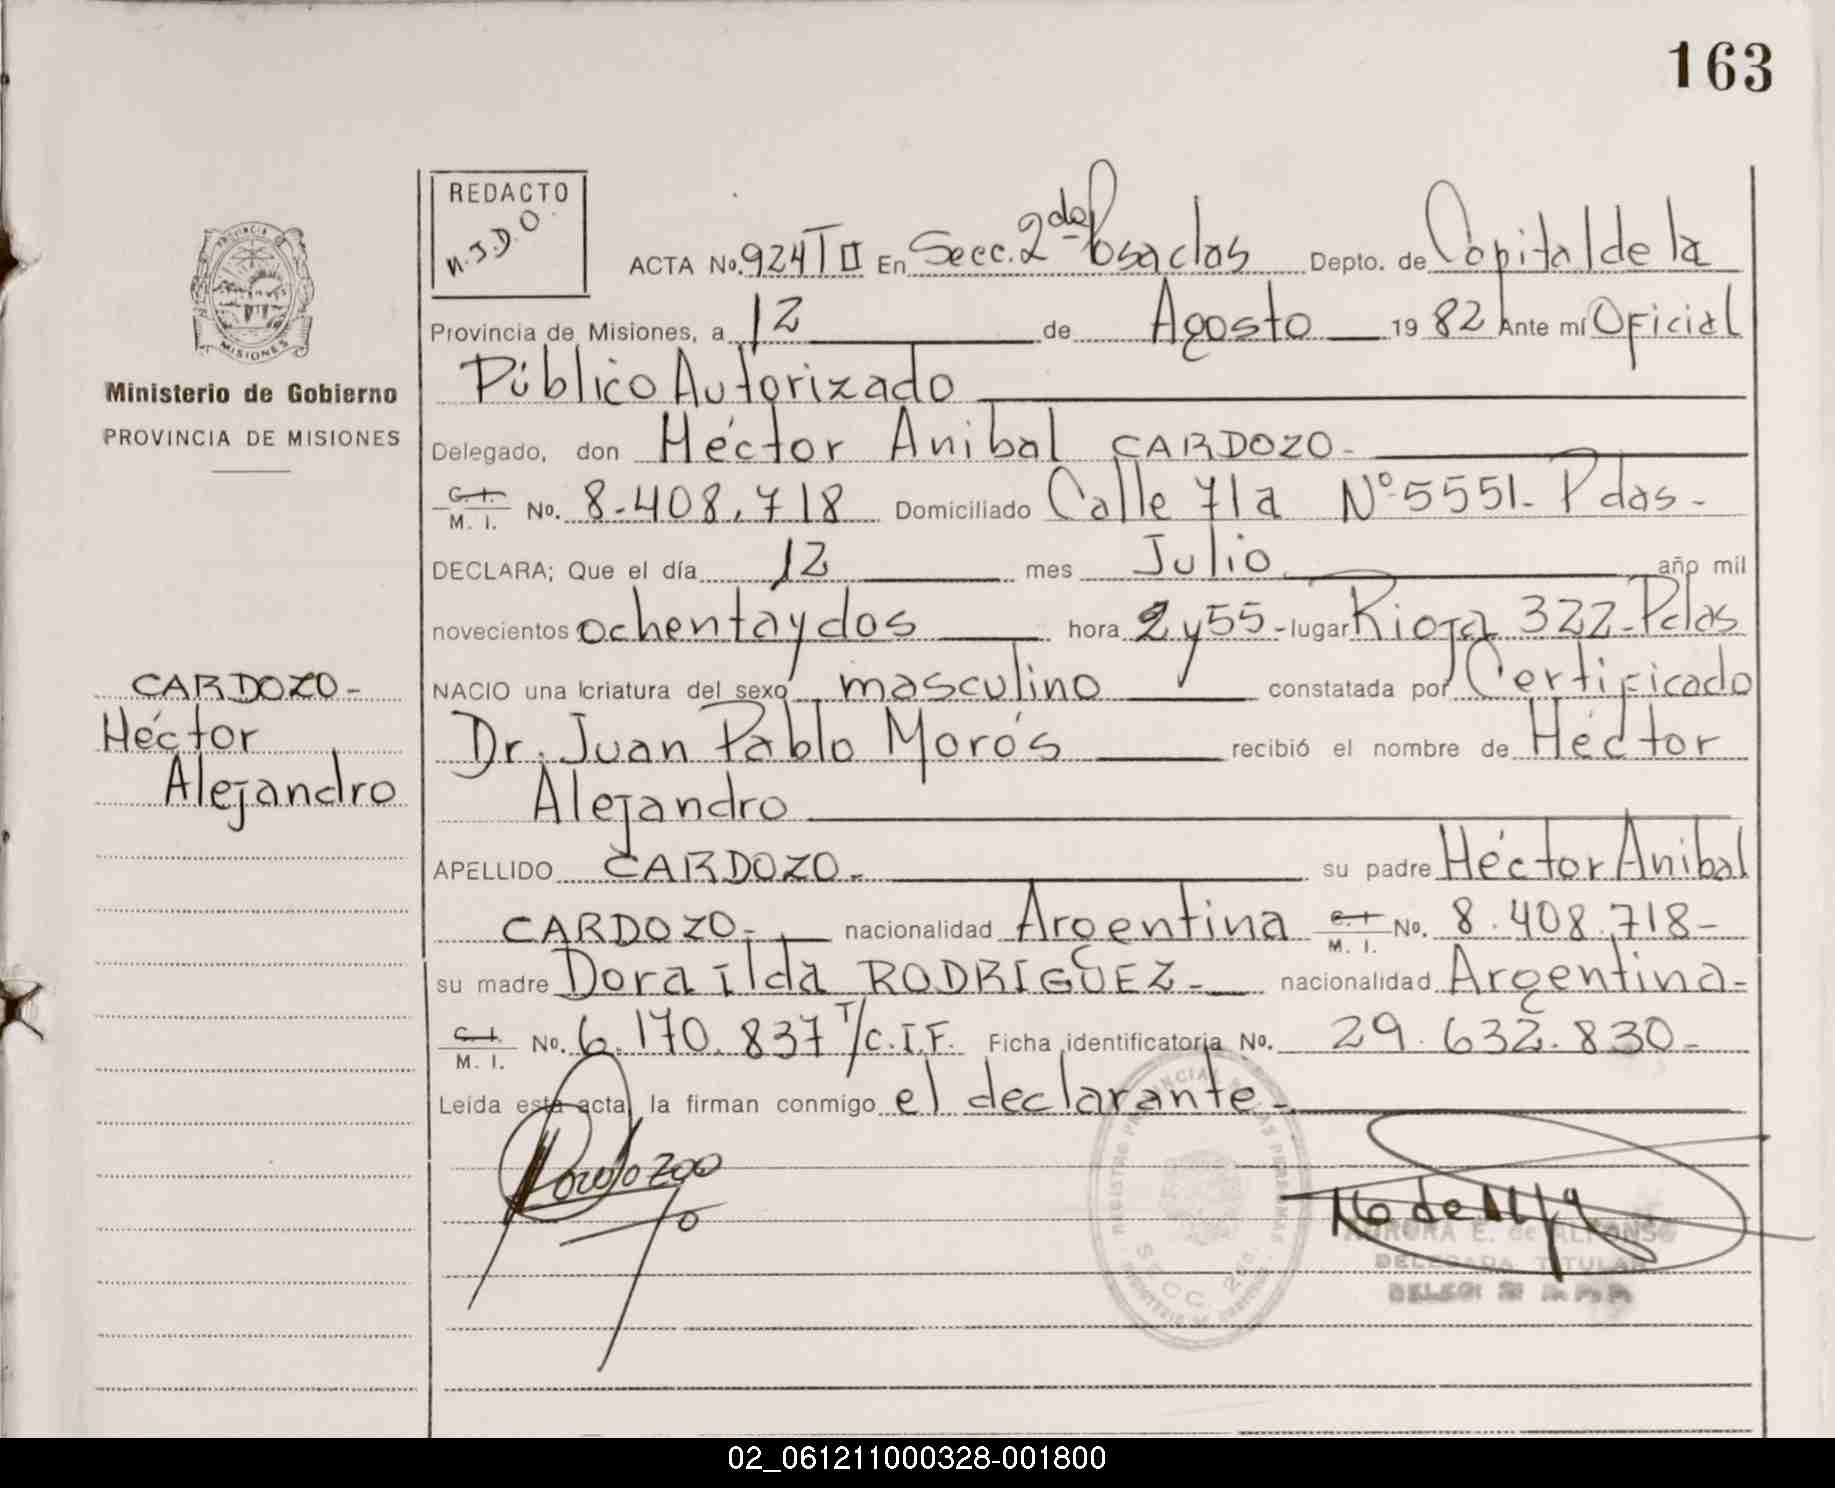 163
REDACTO
N.J.D.O.
ACTA No. 924 T II En Secc. 2da Posadas Depto. de Capital de la
Provincia de Misiones, a 12 de Agosto 1982 Ante mí Oficial
Público Autorizado
Delegado, don Héctor Anibal CARDOZO-
C. I. M. I. No. 8.408.718 Domiciliado Calle 71a Nº 5551- Pdas-
DECLARA; Que el día 12 mes Julio año mil
novecientos ochenta y dos hora 2 y 55 - lugar Rioja 322- Pdas
NACIO una criatura del sexo masculino constatada por Certificado
Dr. Juan Pablo Morós recibió el nombre de Héctor
Alejandro
APELLIDO CARDOZO- su padre Héctor Anibal
CARDOZO- nacionalidad Argentina C. I. M. I. No. 8.408.718-
su madre Dora ilda RODRIGUEZ- nacionalidad Argentina-
C. I. M. I. No. 6.170.837 T/C.I.F. Ficha identificatoria No. 29.632.830-
Leída esta acta, la firman conmigo el declarante-
PROVINCIA
MISIONES
Ministerio de Gobierno
PROVINCIA DE MISIONES
CARDOZO-
Héctor
Alejandro
AURORA E. de ALFONSO
DELEGADA TITULAR
02_061211000328-001800